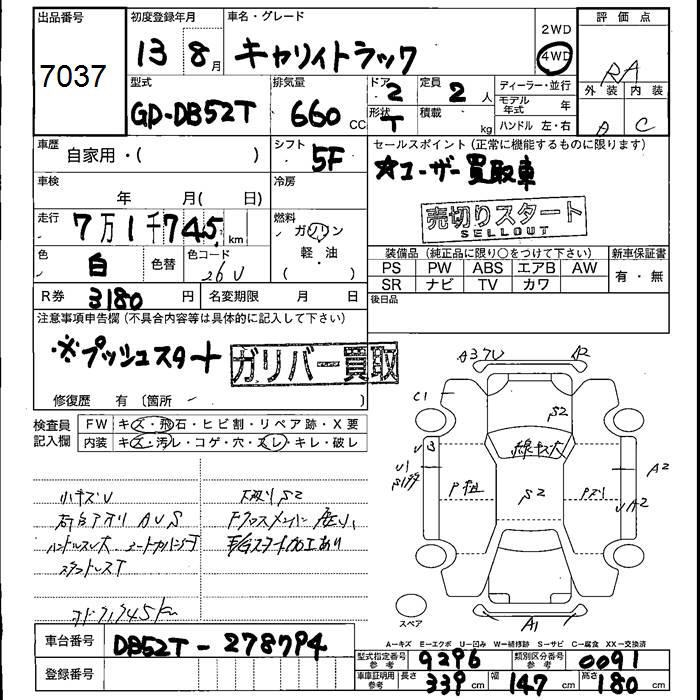 出品番号 初度登録年月 車名・グレード 2WD 評価点
7037 13 8月 キャリィトラック 4WD RA
型式 排気量 ドア 定員 ディーラー・並行 外装 内装
GD-DB52T 660 CC 2 2人 モデル年式 年 A C
形状 T 積載 kg ハンドル 左・右
車歴 自家用・( ) シフト 5F セールスポイント(正常に機能するものに限ります)
☆ユーザー買取車
車検 年 月( 日) 冷房
売切りスタート
SELLOUT
走行 7万1千745km 燃料 ガソリン・軽・油
色 白 色替 色コード 26U
装備品(純正品に限り○をつけて下さい) 新車保証書
PS PW ABS エアB AW 有・無
SR ナビ TV カワ
R券 3180円 名変期限 月 日 後日品
注意事項申告欄(不具合内容等は具体的に記入して下さい)
※プッシュスタート
ガリバー買取
修復歴 有(箇所 )
検査員記入欄 FW キズ・飛石・ヒビ割・リペア跡・X要
内装 キズ・汚レ・コゲ・穴・スレ・キレ・破レ
小キズU 下廻りS2
ハンドルスレ大
加工あり
A3 A2
C1 S2
線キズ大
UB
U1
P S2 P A2
UA2
スペア A1
A-キズ E-エクボ U-凹み W-補修跡 S-サビ C-腐食 XX-交換済
車台番号 DB52T-278794
型式指定番号 参考 9296 類別区分番号 参考 0091
登録番号 車庫証明用 参考 長さ 339cm 幅 147cm 高さ 180cm